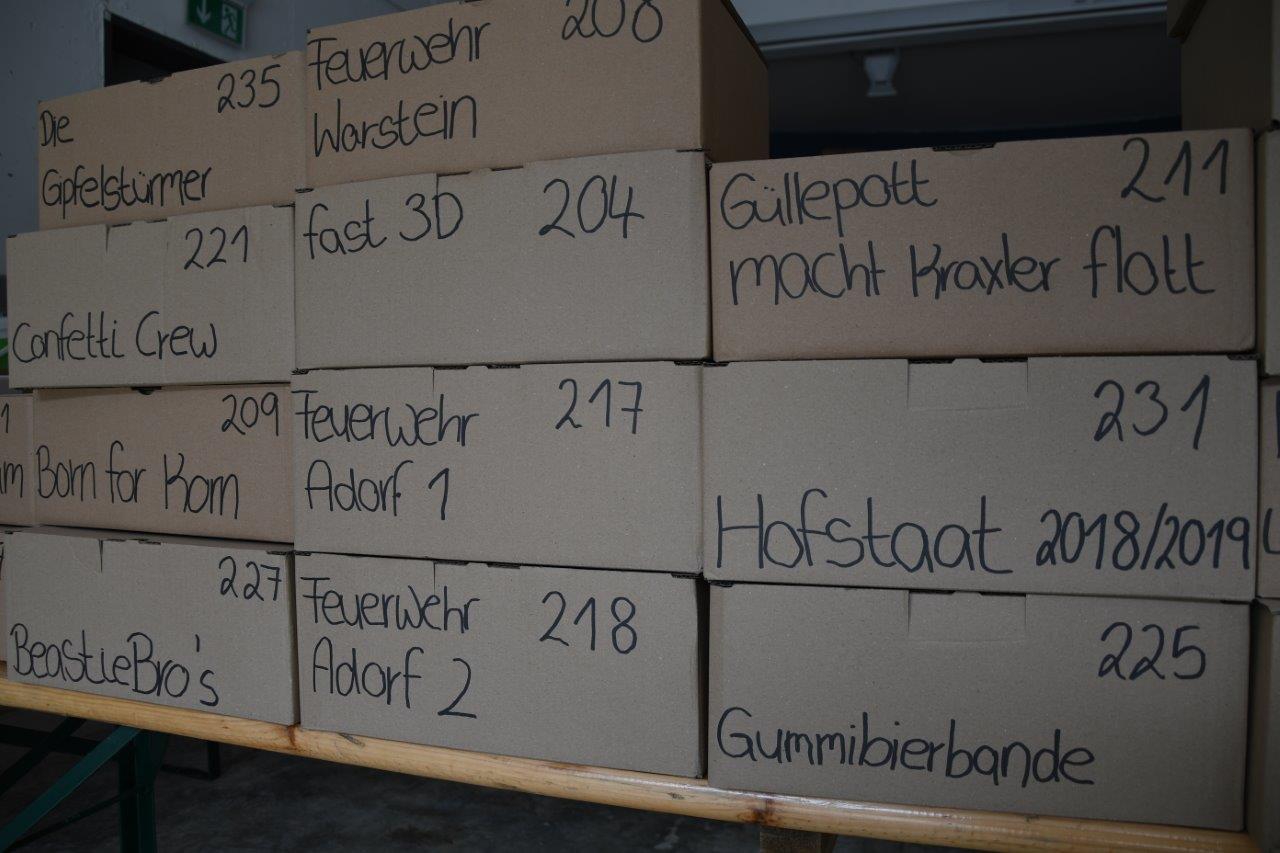 235
Die
Gipfelstürmer
Feuerwehr 208
Warstein
221
Confetti Crew
fast 3D 204
Güllepott 211
macht Kraxler flott
209
Born for Korn
Feuerwehr 217
Adorf 1
231
Hofstaat 2018/2019
227
BeastieBro's
Feuerwehr 218
Adorf 2
225
Gummibierbande